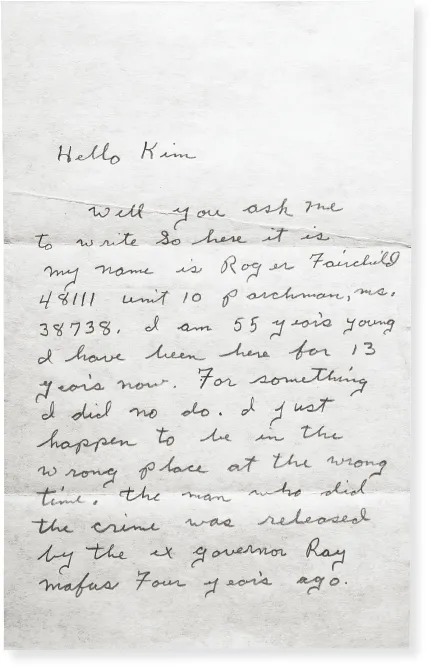 Hello Kim
well you ask me
to write So here it is
my name is Roger Fairchild
48111 unit 10 Parchman, ms.
38738. I am 55 yeois young
I have been here for 13
yeois now. For something
I did no do. I just
happen to be in the
wrong place at the wrong
time. the man who did
the crime was released
by the ex governor Ray
mafus Four yeois ago.